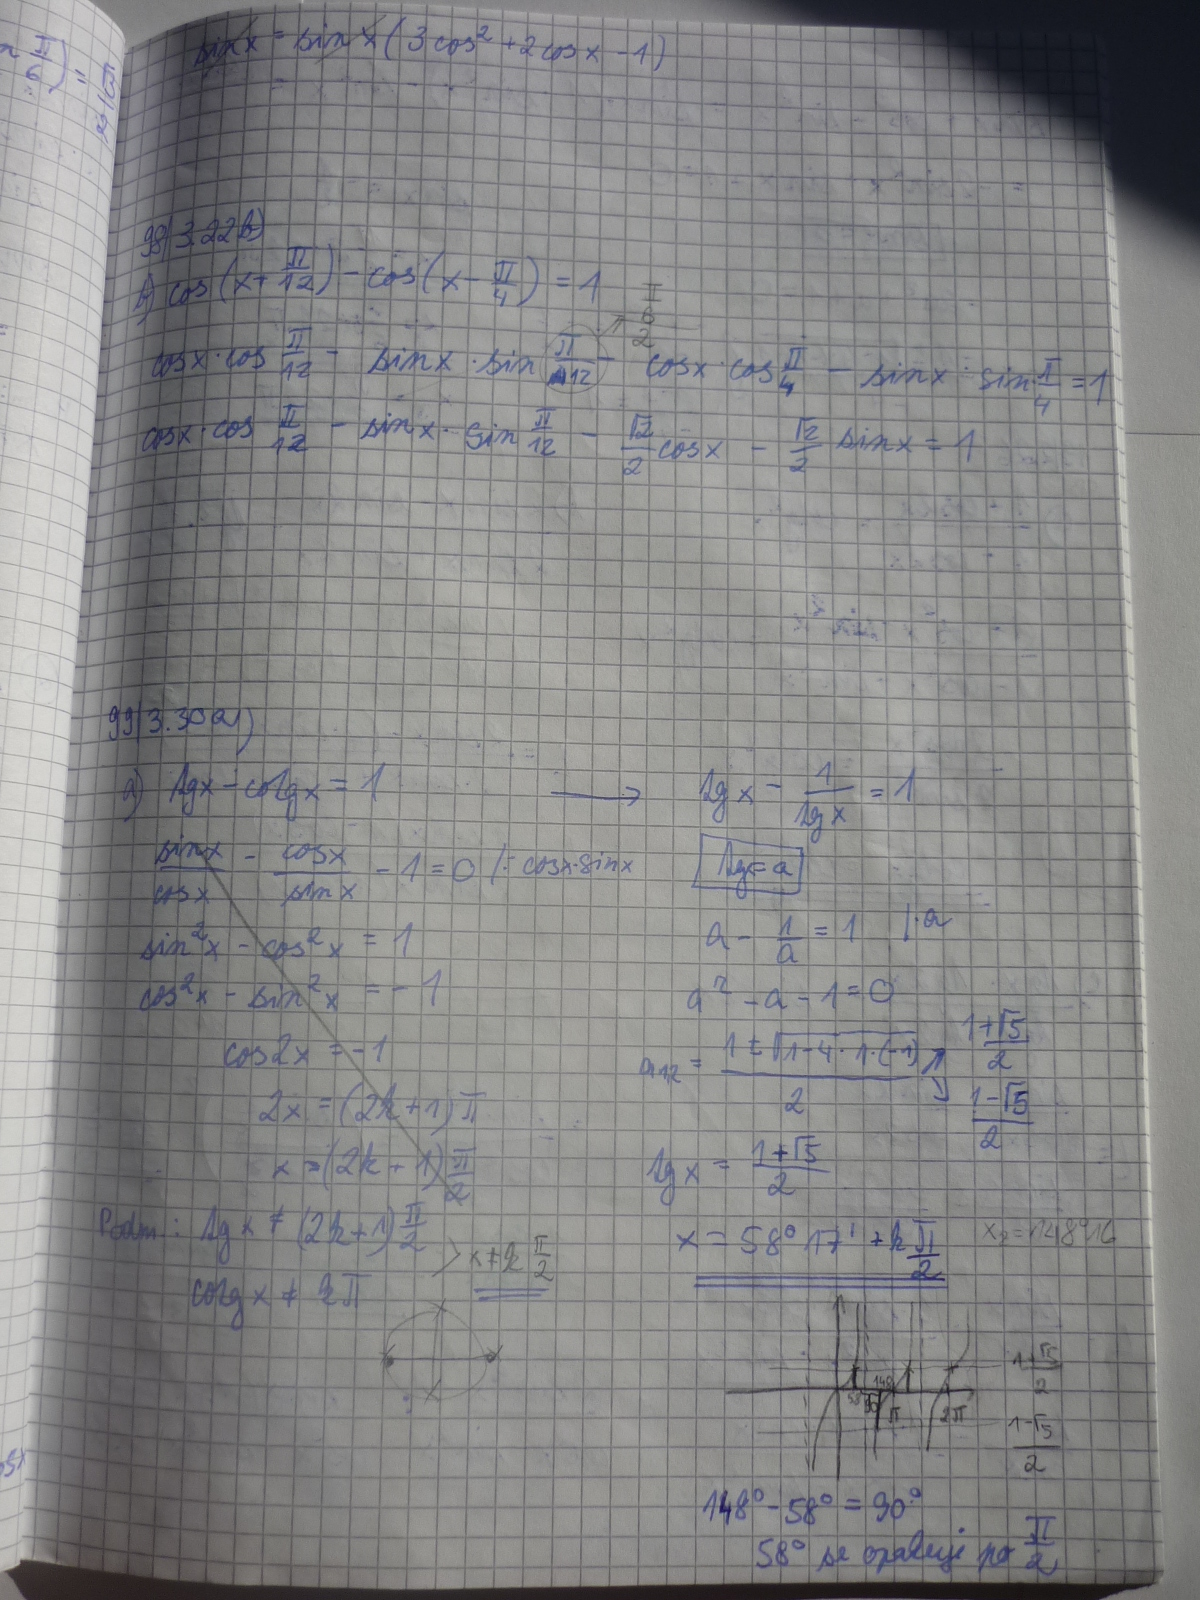 sinx = sinx (3cos² + 2cosx - 1)
99/3.22b)
b) cos(x + π/12) - cos(x - π/4) = 1
π/6/2
cosx · cos π/12 - sinx · sin π/12 - cosx · cos π/4 - sinx · sin π/4 = 1
cosx · cos π/12 - sinx · sin π/12 - √2/2 cosx - √2/2 sinx = 1
99/3.30a)
a) tgx - cotgx = 1 → tgx - 1/tgx = 1
sinx/cosx - cosx/sinx - 1 = 0 /· cosx·sinx
sin²x - cos²x = 1
cos²x - sin²x = -1
cos2x = -1
2x = (2k+1)π
x = (2k+1)π/2
Podm: tgx ≠ (2k+1)π/2
cotgx ≠ kπ
> x ≠ k π/2
tg = a
a - 1/a = 1 /·a
a² - a - 1 = 0
a₁,₂ = (1 ± √(1-4·1·(-1)))/2
(1+√5)/2
(1-√5)/2
tgx = (1+√5)/2
x = 58°17' + k π/2
x₂ = 148°16
(1+√5)/2
58 90 148 π 2π
(1-√5)/2
148° - 58° = 90°
58° se opakuje po π/2